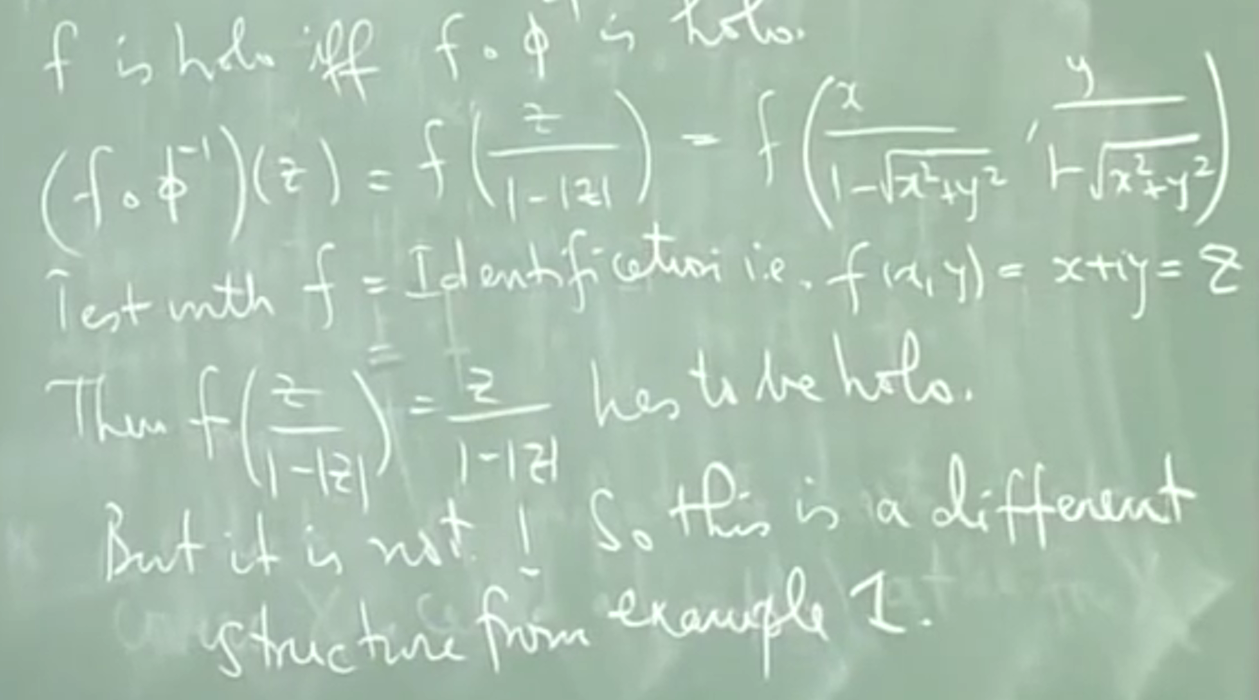 f is holo iff f∘ϕ⁻¹ is holo.
(f∘ϕ⁻¹)(z) = f(z/(1-|z|)) = f(x/(1-√(x²+y²)), y/(1-√(x²+y²)))
Test with f = Identification i.e. f(x,y) = x+iy = z
Then f(z/(1-|z|)) = z/(1-|z|) has to be holo.
But it is not! So this is a different
structure from example 1.